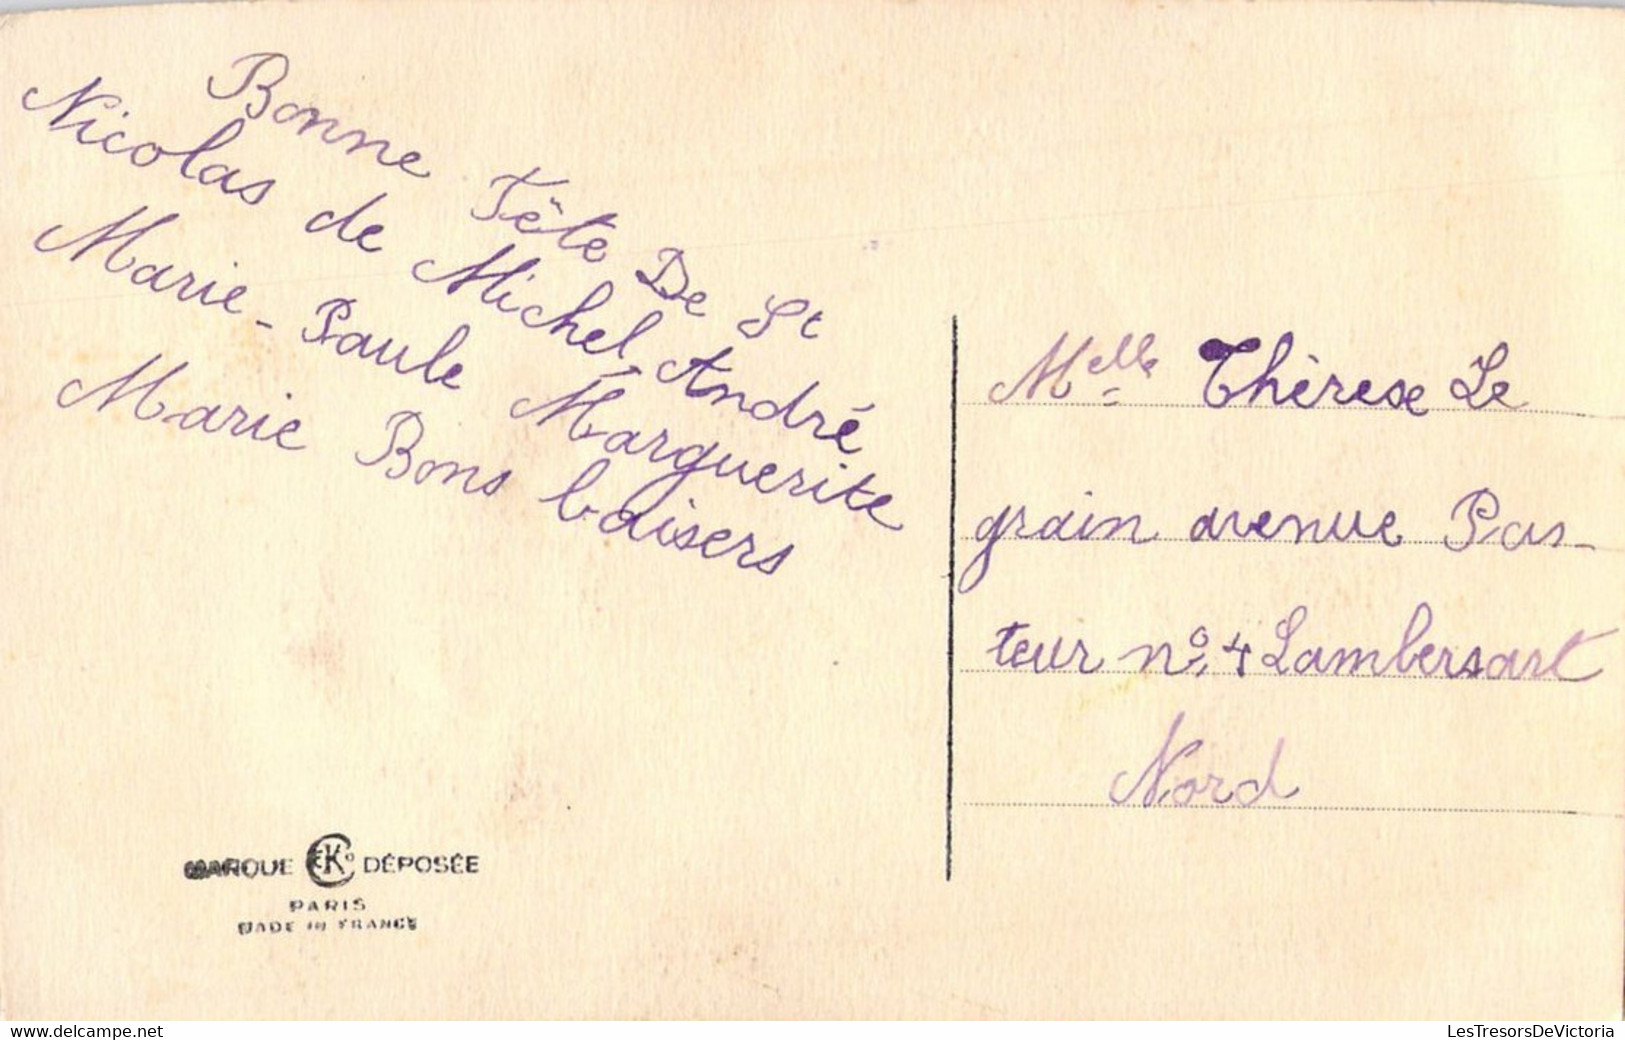 Bonne Fête De St
Nicolas de Michel, André
Marie-Paule Marguerite
Marie Bons baisers
Melle Thérèse Le
grain avenue Pas-
teur no. 4 Lambersart
Nord
MARQUE CK DÉPOSÉE
PARIS
MADE IN FRANCE
www.delcampe.net
LesTresorsDeVictoria